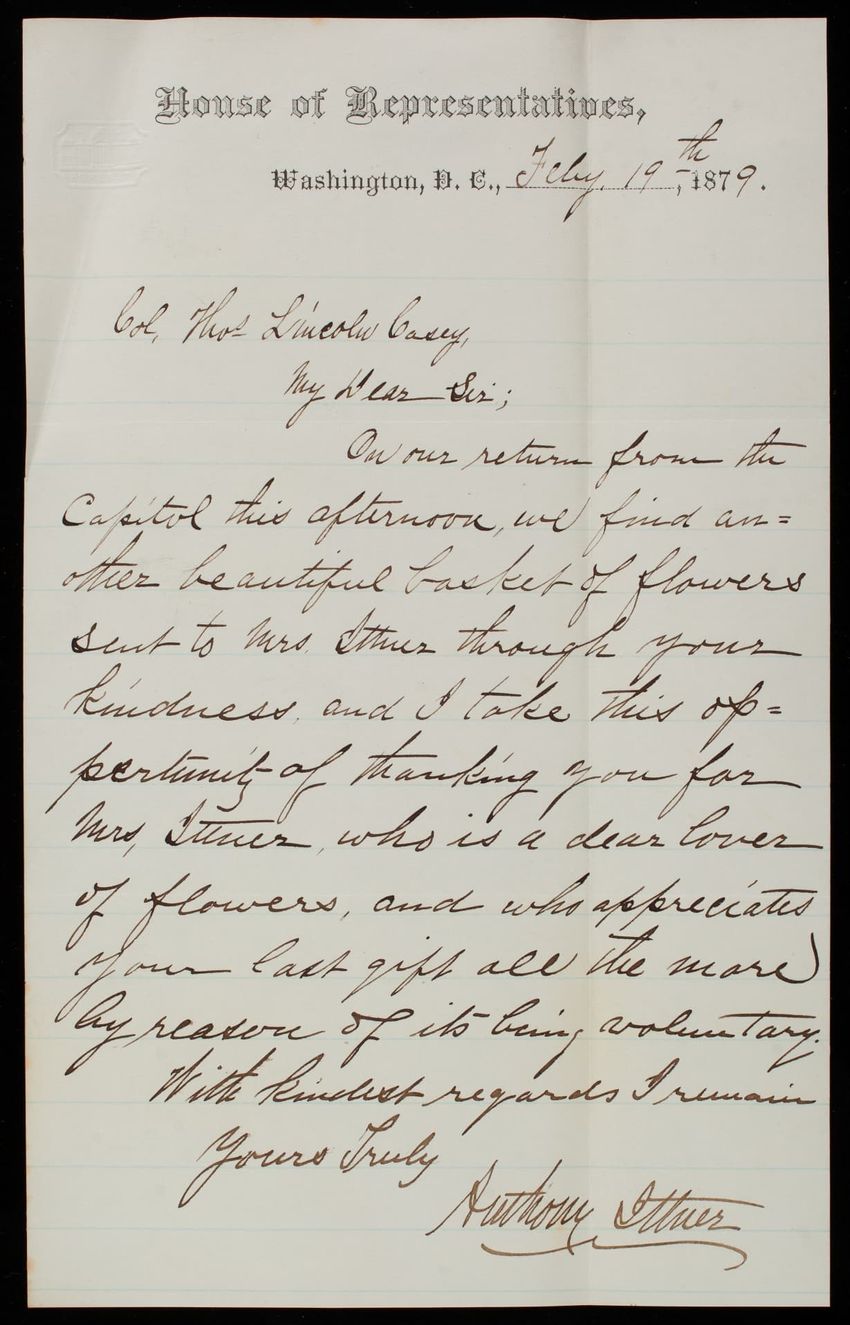 House of Representatives,
Washington, D. C., Feby. 19th, 1879.
Col. Thos Lincoln Casey,
My Dear Sir;
On our return from the
Capitol this afternoon, we find an=
other beautiful basket of flowers
sent to Mrs. Ittner through your
kindness, and I take this op=
pertunity of thanking you for
Mrs, Ittner, who is a dear lover
of flowers, and who appreciates
your last gift all the more
by reason of its being voluntary.
With kindest regards I remain
Yours Truly
Anthony Ittner